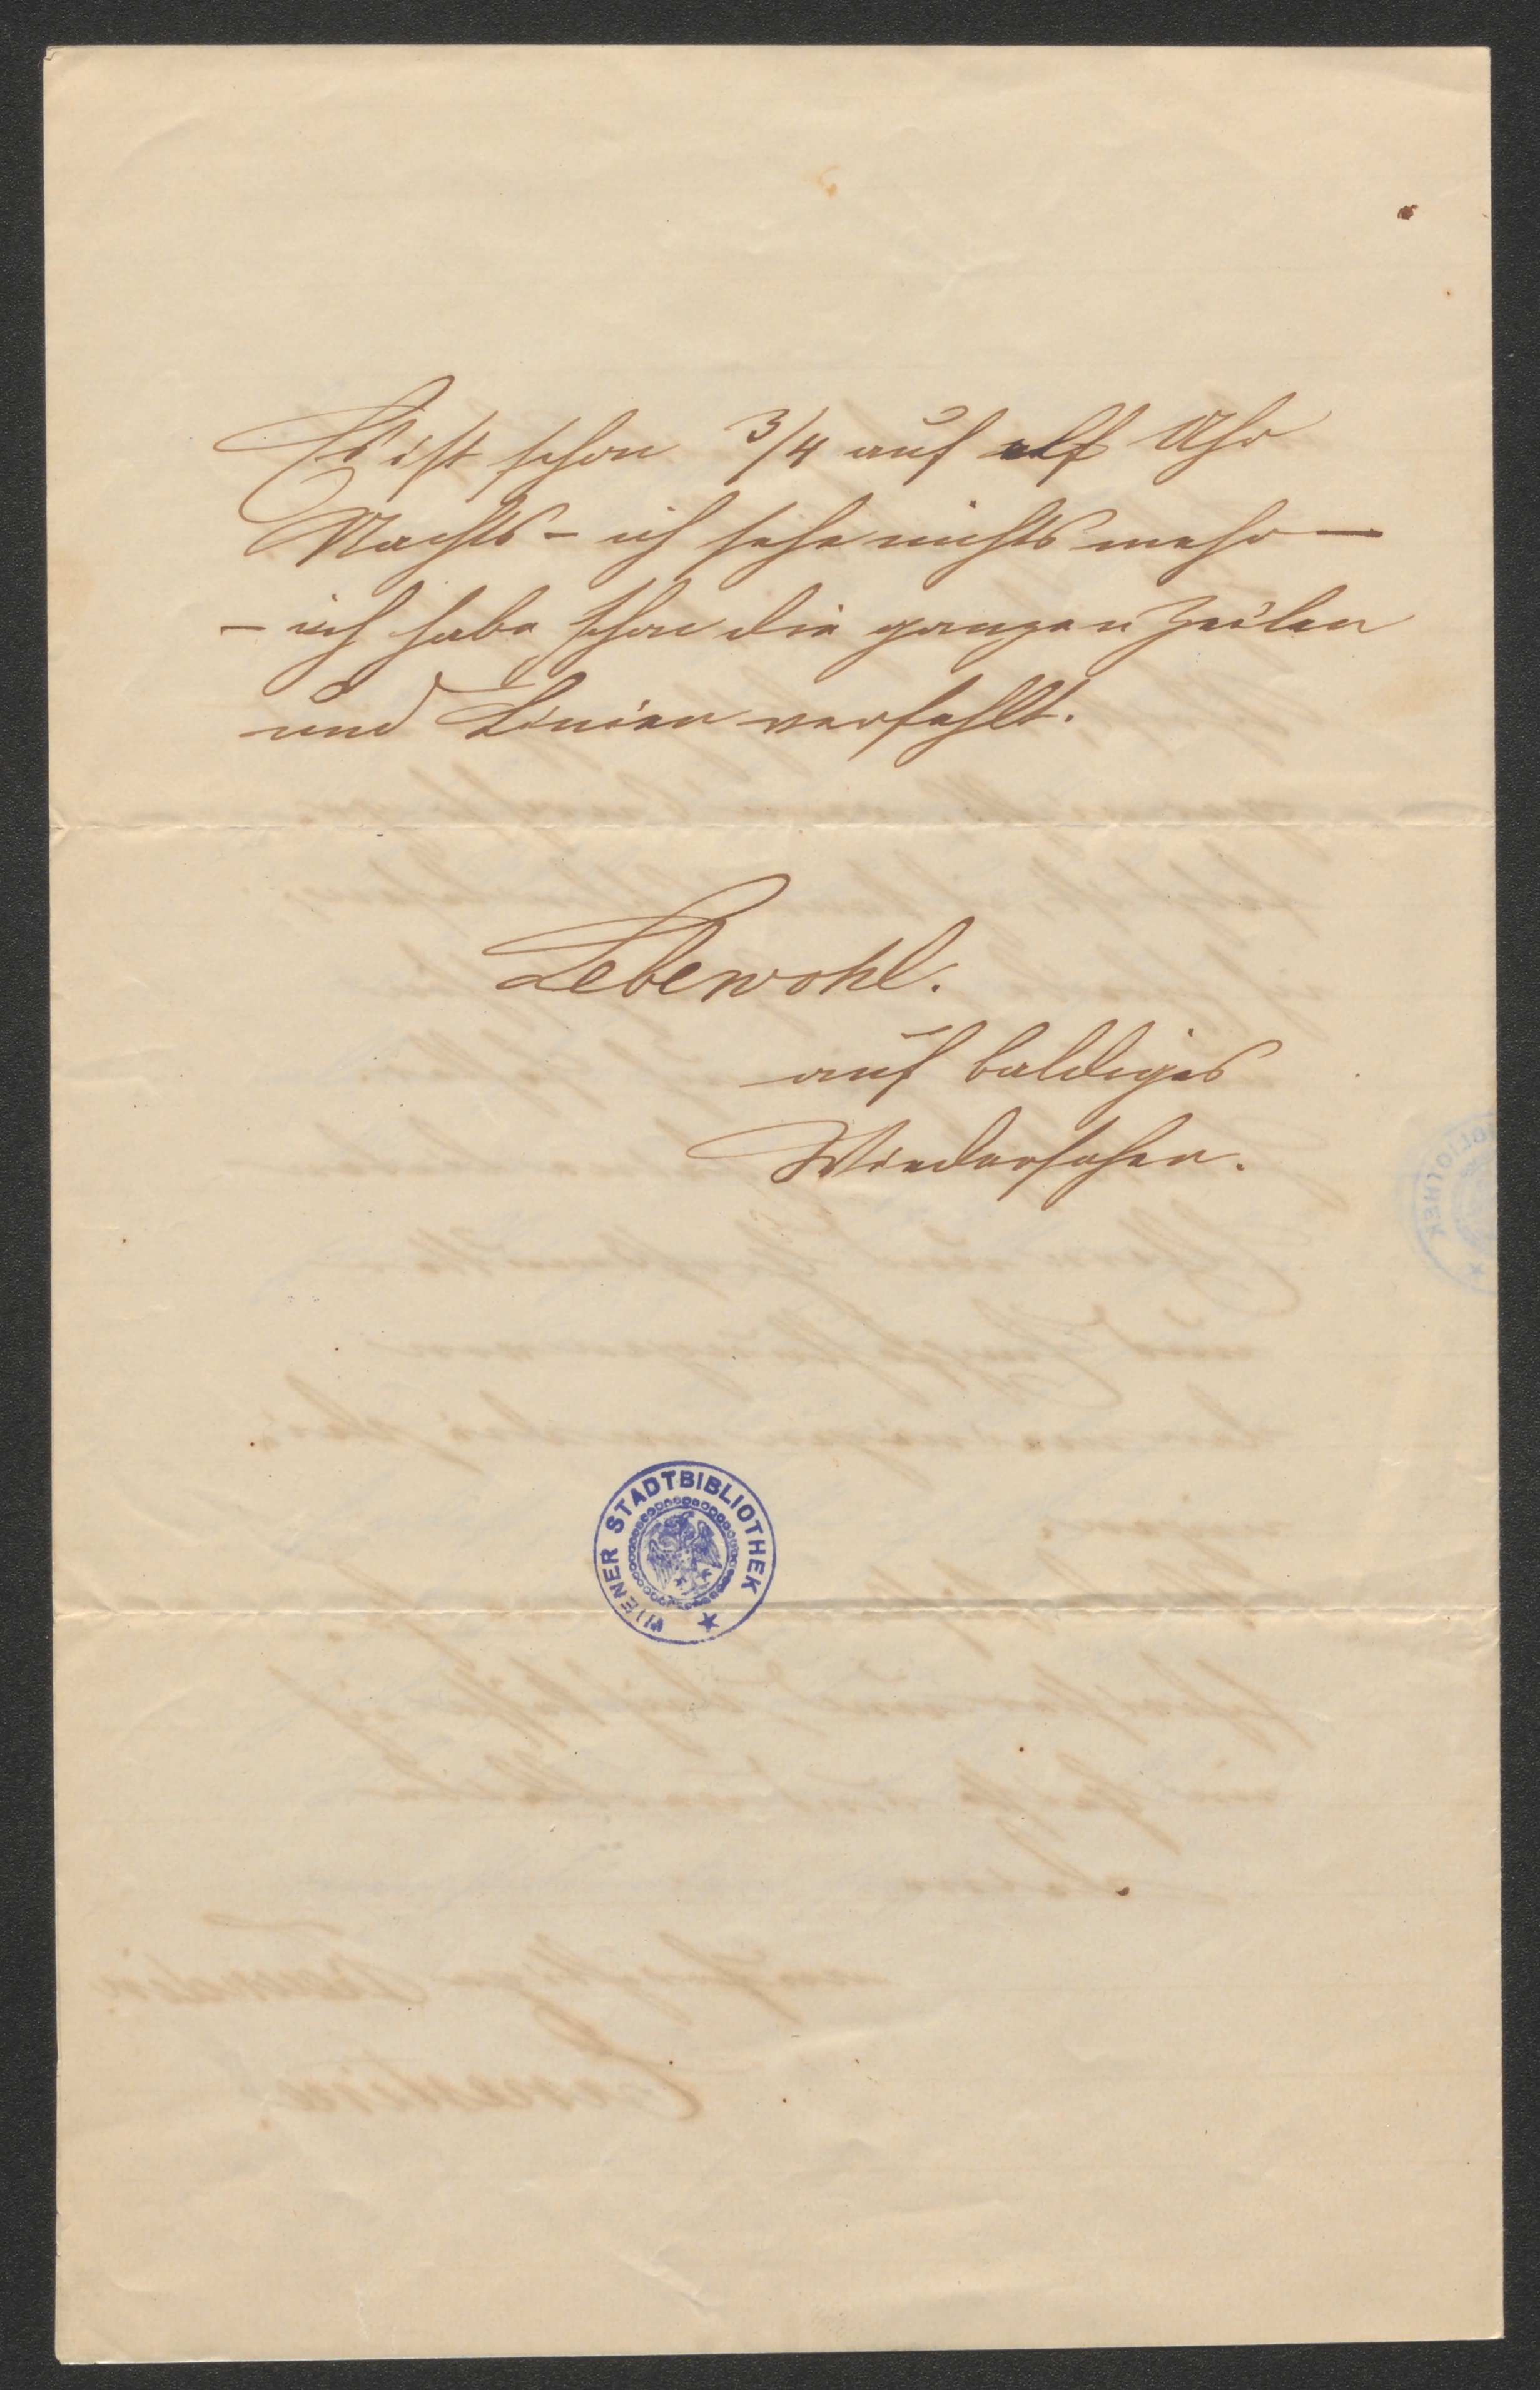 Es ist schon 3/4 auf elf Uhr
Nachts - ich sehe nichts mehr —
- ich habe schon die ganzen Zeilen
und Linien verfehlt.
Lebewohl.
auf baldiges
Wiedersehen.
WIENER STADTBIBLIOTHEK